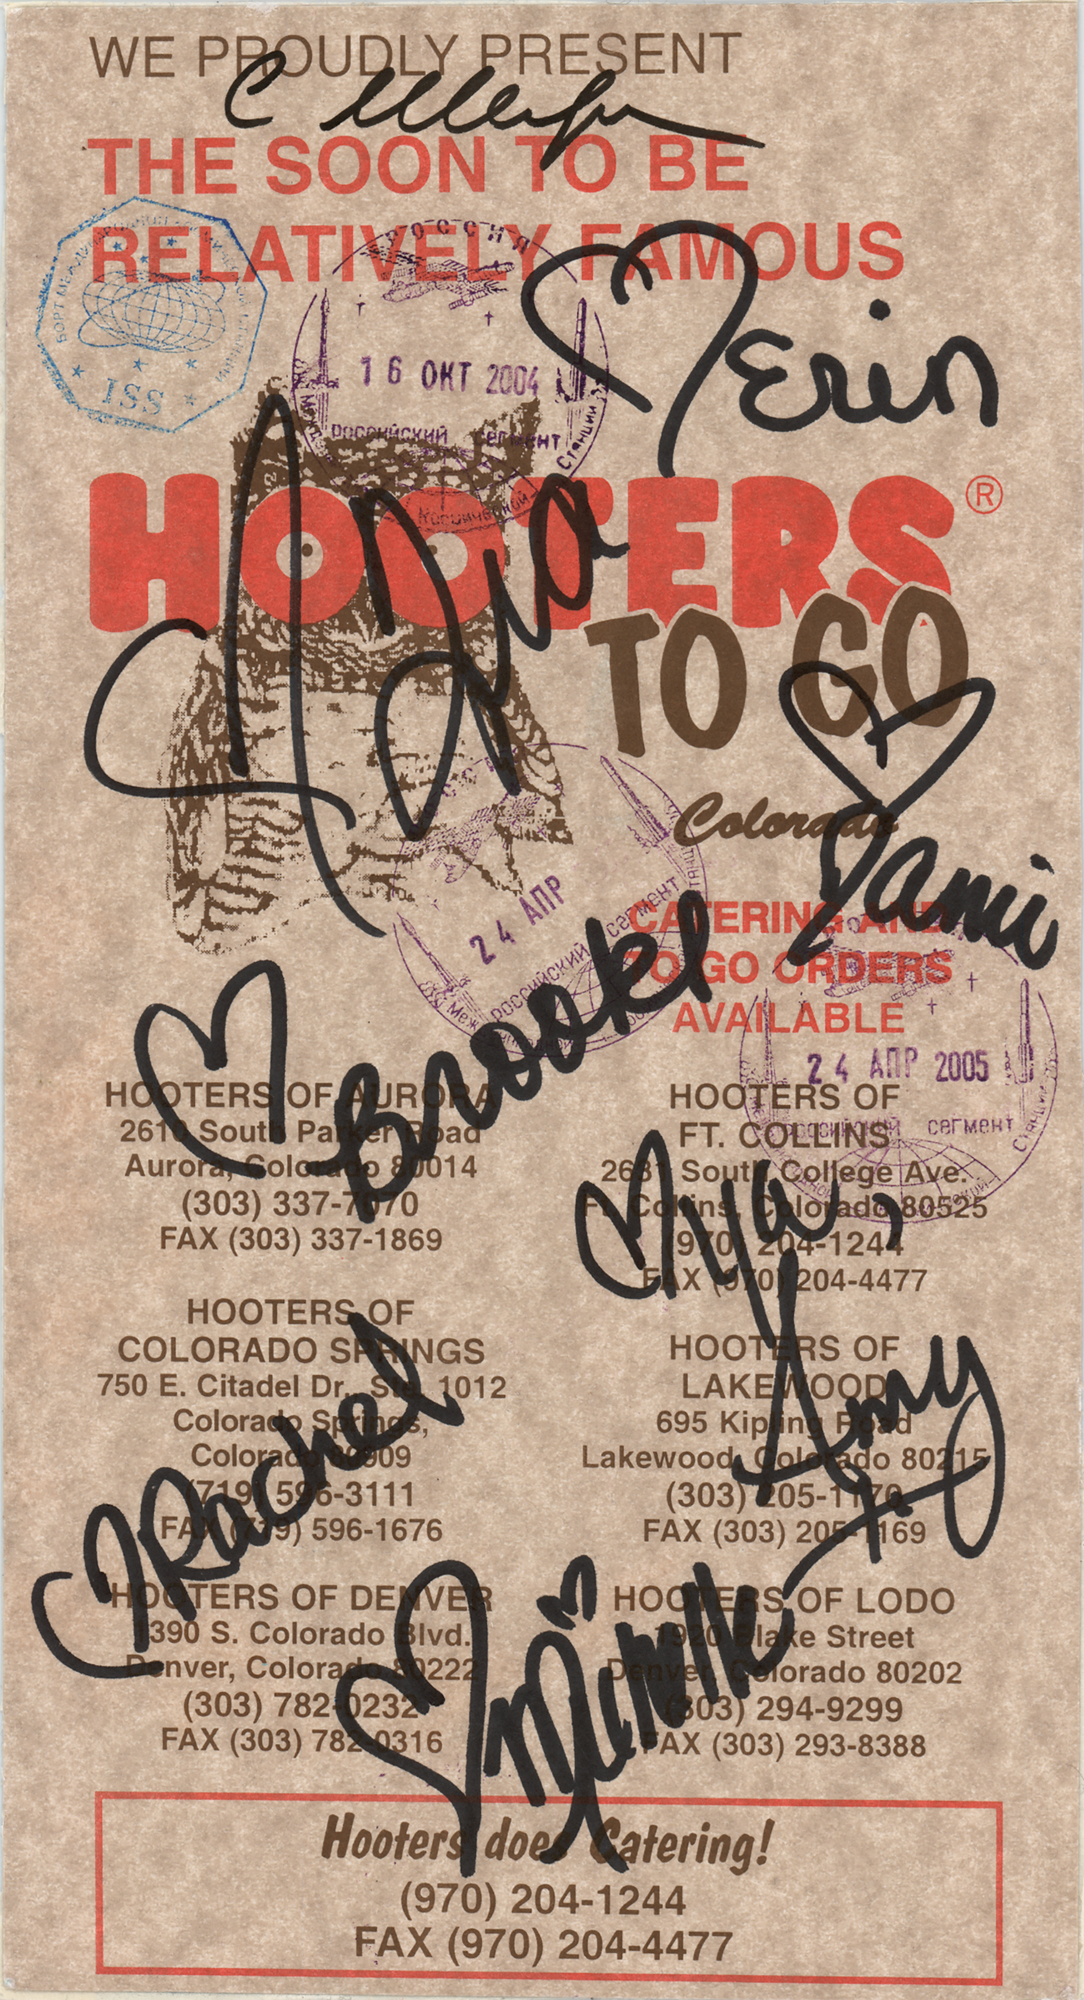 WE PROUDLY PRESENT
THE SOON TO BE
RELATIVELY FAMOUS
ISS
РОССИЯ
16 ОКТ 2004
российский сегмент
Станции
Erin
HOOTERS®
TO GO
Colorado
Jamie
24 АПР
российский сегмент
CATERING AND
TO GO ORDERS
AVAILABLE
Brooke
24 АПР 2005
российский сегмент
HOOTERS OF AURORA
2610 South Parker Road
Aurora, Colorado 80014
(303) 337-7070
FAX (303) 337-1869
HOOTERS OF
COLORADO SPRINGS
750 E. Citadel Dr., Ste. 1012
Colorado Springs,
Colorado 80909
(719) 596-3111
FAX (719) 596-1676
Rachel
HOOTERS OF DENVER
390 S. Colorado Blvd.
Denver, Colorado 80222
(303) 782-0232
FAX (303) 782-0316
HOOTERS OF
FT. COLLINS
2631 South College Ave.
Ft. Collins, Colorado 80525
(970) 204-1244
FAX (970) 204-4477
ya,
Amy
HOOTERS OF
LAKEWOOD
695 Kipling Road
Lakewood, Colorado 80215
(303) 205-1170
FAX (303) 205-1169
HOOTERS OF LODO
1920 Blake Street
Denver, Colorado 80202
(303) 294-9299
FAX (303) 293-8388
Hooters does Catering!
(970) 204-1244
FAX (970) 204-4477